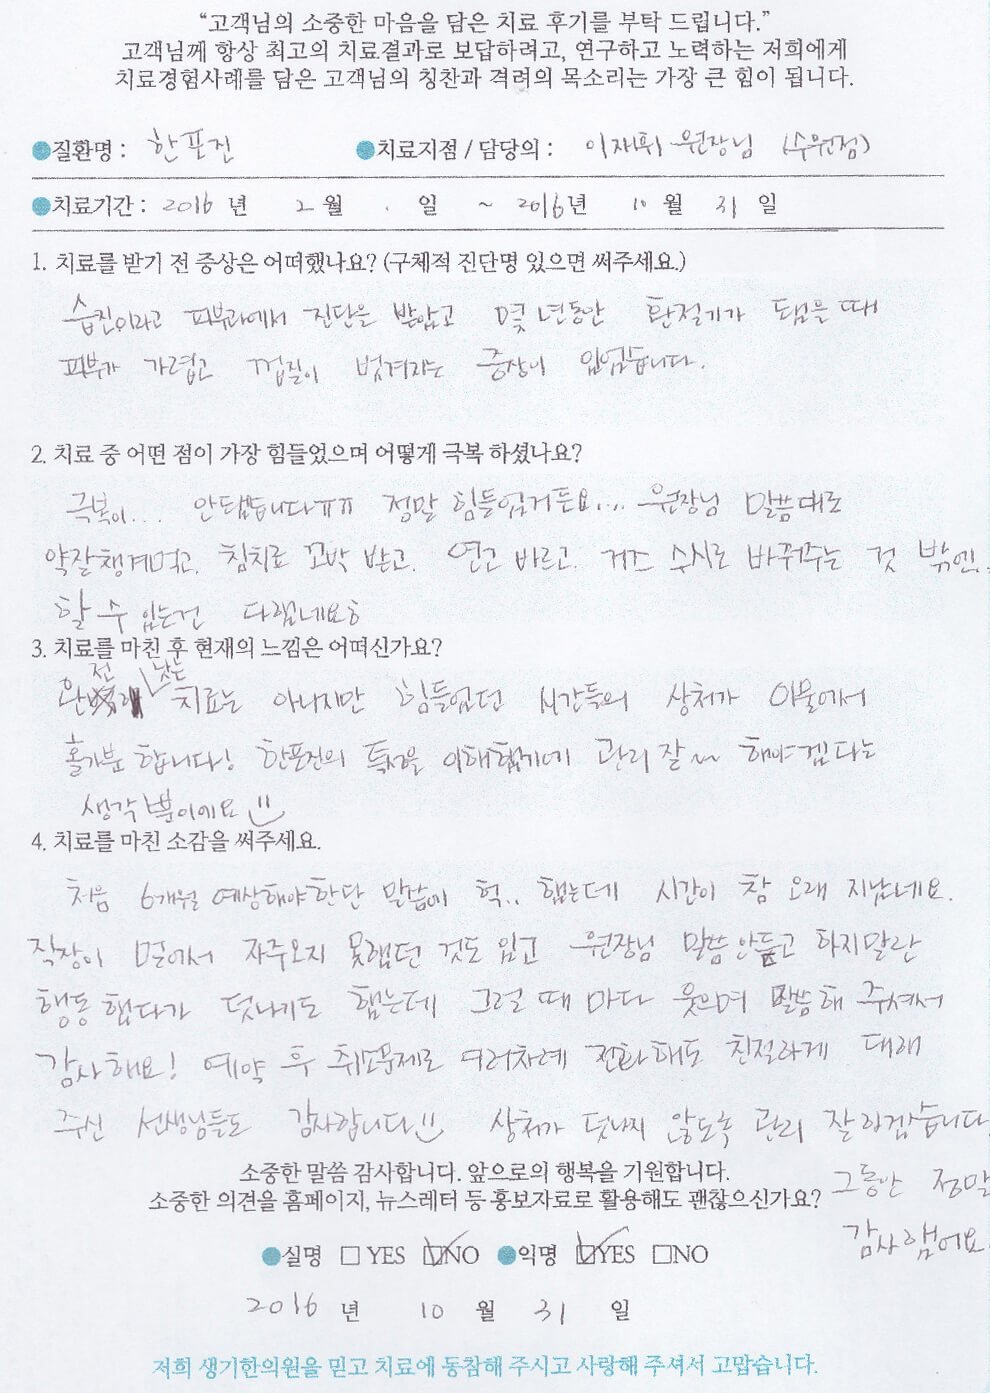 “고객님의 소중한 마음을 담은 치료 후기를 부탁 드립니다.”
고객님께 항상 최고의 치료결과로 보답하려고, 연구하고 노력하는 저희에게
치료경험사례를 담은 고객님의 칭찬과 격려의 목소리는 가장 큰 힘이 됩니다.
질환명 : 한포진 치료지점 / 담당의 : 이재휘 원장님 (수원점)
치료기간 : 2016 년 2 월 . 일 ~ 2016년 10 월 31 일
1. 치료를 받기 전 증상은 어떠했나요? (구체적 진단명 있으면 써주세요.)
습진이라고 피부과에서 진단을 받았고 몇 년동안 환절기가 됐을 때
피부가 가렵고 껍질이 벗겨지는 증상이 있었습니다.
2. 치료 중 어떤 점이 가장 힘들었으며 어떻게 극복 하셨나요?
극복이... 안됐습니다ㅠㅠ 정말 힘들었거든요... 원장님 말씀대로
약잘챙겨먹고, 침치료 꼬박 받고, 연고 바르고, 거즈 수시로 바꿔주는 것 밖엔..
할 수 있는건 다했네요ㅎ
3. 치료를 마친 후 현재의 느낌은 어떠신가요?
완전 낫는 치료는 아니지만 힘들었던 시간들의 상처가 아물어서
홀가분 합니다! 한포진의 특성을 이해했기에 관리 잘~~ 해야겠다는
생각 뿐이에요
4. 치료를 마친 소감을 써주세요.
처음 6개월 예상해야한단 말씀에 헉.. 했는데 시간이 참 오래 지났네요.
직장이 멀어서 자주오지 못했던 것도 있고 원장님 말씀 안듣고 하지말란
행동 했다가 덧나기도 했는데 그럴 때 마다 웃으며 말씀해 주셔서
감사해요! 예약 후 취소문제로 여러차례 전화해도 친절하게 대해
주신 선생님들도 감사합니다 상처가 덧나지 않도록 관리 잘 하겠습니다
그동안 정말
감사했어요
소중한 말씀 감사합니다. 앞으로의 행복을 기원합니다.
소중한 의견을 홈페이지, 뉴스레터 등 홍보자료로 활용해도 괜찮으신가요?
실명 YES NO 익명 YES NO
2016 년 10 월 31 일
저희 생기한의원을 믿고 치료에 동참해 주시고 사랑해 주셔서 고맙습니다.